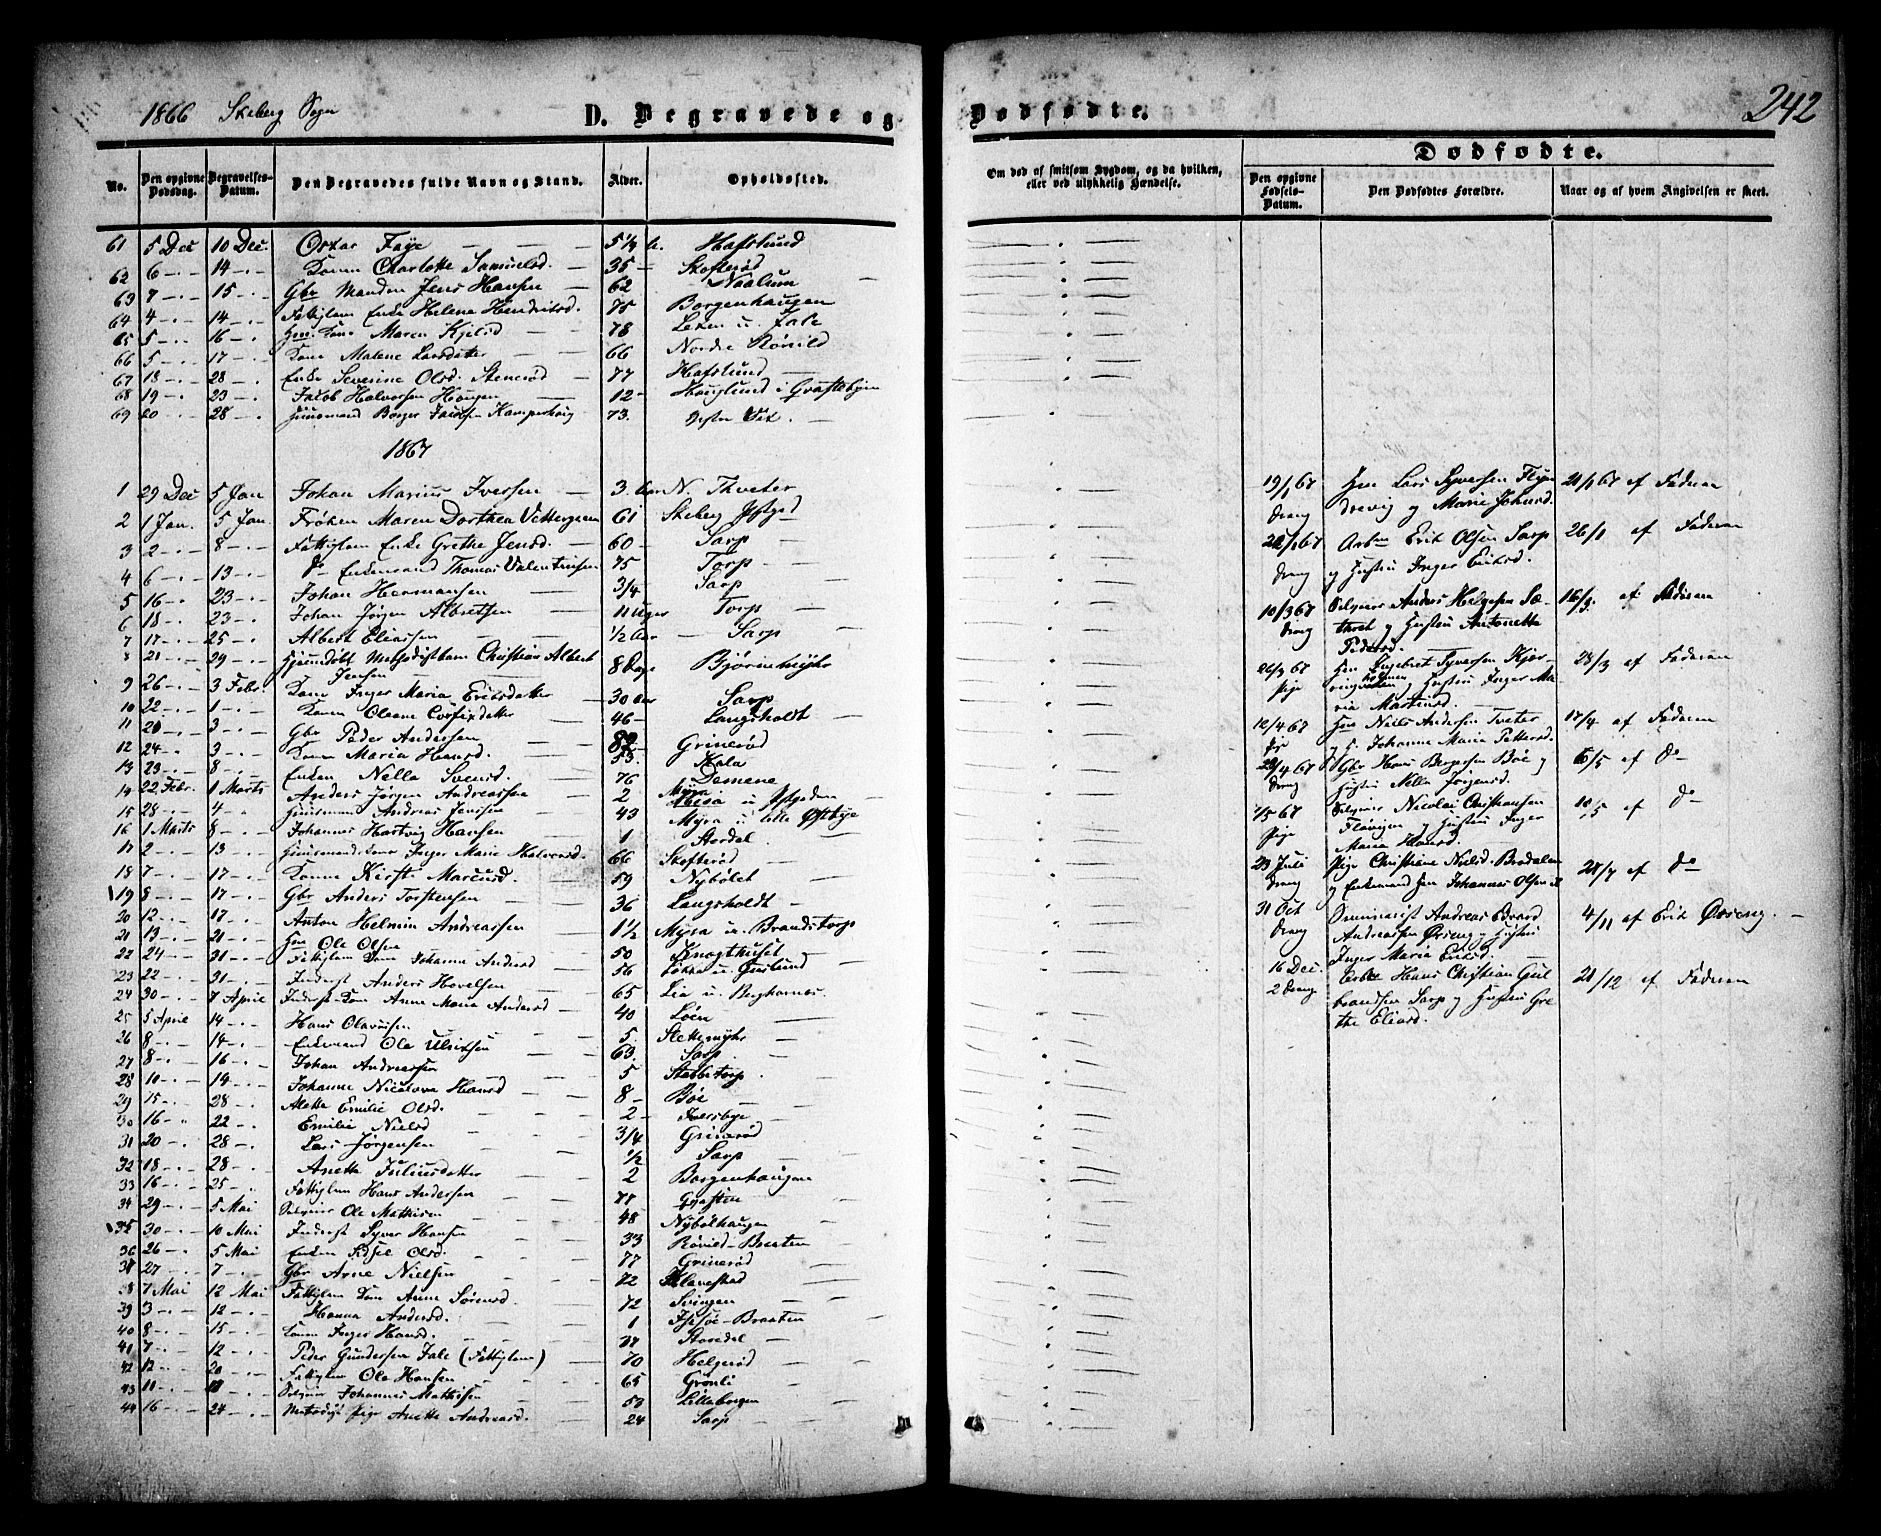 1866 Skeberg Sogn D. Begravede og
No. Den opgivne Dødsdag. Begravelses-Datum. Den Begravedes fulde Navn og Stand. Alder. Opholdssted.
61 5 Dec 10 Dec. Oskar Faye 5 1/4 Hafslund
62 6 14 Konen Charlotte Samuelsd. 35 Skofterød
63 7 15 Gbr Manden Jens Hansen 62 Naalum
64 4 14 Fattiglem Enke Helene Hendriksd. 75 Borgenhaugen
65 5 16 Kone Maren Kjelsd 78 Lexen u. Jale
66 5 17 Kone Malene Larsdatter 66 Nordre Rønild
67 18 28 Enke Severine Olsd. Stenerød 77 Hafslund
68 19 23 Jacob Halvorsen Haugen 12 Hauglund i
69 20 28 Huusmand Borger Jacobsen Kamperhaug 73.
1867
1 29 Dec 5 Jan Johan Marius Iversen 3. Aar N. Thveter
2 1 Jan. 5 Jan. Frøken Maren Dorthea 61 Skeberg
3 2 8 Fattiglem Enke Grethe Jensd. 60 Sarp
4 6 13 Do Enkemand Thomas Valentinsen 75 Torp
5 16 23 Johan Hermansen 3/4 Sarp
6 18 23 Johan Jørgen Albretsen 11 Uger Torp
7 17 25 Albert Eliassen 1/2 Aar Sarp
8 21 29 Hjemdøbt Methodistbarn Christian Albert Jensen 8 Dage Bjørnemyhr
9 26 3 Febr. Kone Inger Maria Eriksdatter 30 Aar Sarp
10 22 1 Konen Oleane 46 Langsholdt
11 20 3 Gbr Peder Andersen 82 Grinerød
12 24 3 Konen Maria Hansd. 53. Hala
13 23 8 Enken Nella Svensd. 76 Demene
14 22 Febr. 1 Marts Anders Jørgen Andreassen 2 Myra u
15 28 4 Huusmand Andreas Jensen 43 Myra u
16 1 Marts 8 Johannes Hartvig Hansen 1 Stordal
17 2 13 Huusmandskone Inger Marie Halvorsd. 66 Skofterød
18 7 17 Konen Kirsti Marcusd. 59 Nybølet
19 8 17 Gbr Anders Torstensen 36 Langsholdt
20 12 17 Anton Helmin Andreassen 1 1/2 Myra u. Brandstorp
21 13 21 Ole Olsen 50 Knagthuset
22 24 31 Fattiglem Kone Johanne Andersd 56 Løkke u. Guslund
23 22 31 Inderst Anders Hovelsen 65 Lia u. Berghamar.
24 30 7 April Inderst-Kone Anne Maria Andersd 40 Løen
25 5 April 14 Hans Olavusen 5. Slettemyhr
26 8 14 Enkemand Ole Ulriksen 63. Sarp
27 8 16 Johan Andreassen 5 Stabbetorp
28 10 14 Johanne Nicolova Hansd 8 Bøe
29 15 28 Alette Emilie Olsd. 2 Iversbye
30 16 22 Emilie Nielsd 3/4 Grinerød
31 20 28 Lars Jørgensen 1/2 Sarp
32 18 28 Anette Juliusdatter 2 Borgenhaugen
33 16 25 Fattiglem Hans Andersen 71 Graften
34 29 5 Mai Selveier Ole Mathisen 48 Nybølhaugen
35 30 10 Mai Inderst Syver Hansen 33 Rønild-Braaten
36 26 5 Mai Enken Sidsel Olsd. 77 Grinerød
37 27 7 Gbr Arne Nielsen 72 Klavestad
38 7 Mai 12 Mai Fattiglem Kone Anne Sørensd. 72 Svingen
39 3 12 Hanna Andersd. 1 Braaten
40 8 15 Konen Inger Hansd. 37 Stordal
41 7 12 Peder Gundersen Jale (Fattiglem) 70 Helgerød
42 12 20 Fattiglem Ole Hansen 65 Grønli
43 11 Selveier Johannes Mathisen 53 Lilleborgen
44 16 24 Methodist Pige Anette Andreasd. 24 Sarp
Dødfødte. 242
Om død af smitsom Sygdom, og da hvilken, eller ved ulykkelig Hændelse.
Dødfødte.
Den opgivne Fødsels-Datum. Den Dødfødtes Forældre. Naar og af hvem Angivelsen er skeet.
19/1 67 Lars Syversen 21/1 67 af Faderen
Dreng og Marie Johnsd.
22/1 67 Erik Olsen Sarp 26/1 af Faderen
Dreng og Hustru Inger Eriksd.
10/3 67 Selveier Anders Helgesen Sæ- 16/3 af Faderen
Dreng og Hustru Antonette
Pedersd.
26/3 67 Ingebret Syversen Kjær- 28/3 af Faderen
Pige og Hustru Inger Ma
ria Martinsd.
12/4 67 Gbr Niels Andersen Tveter 17/4 af Faderen
Pige og H. Johanne Maria Pettersd.
28/4 67 Gbr Hans Borgersen Bøe og 6/5 af Do
Dreng Hustru Nella Jørgensd.
7/5 67 Selveier Nicolai Christiansen 10/5 af Do
Pige og Hustru Inger
Maria Hansd.
23 Juli Pige Christiane Nielsd. 28/7 af Do
Dreng og Enkemand Johannes Olsen
31 Oct Seminarist Andreas Evard 4/11 af Erik Øreng.
Dreng Andreassen Øreng og Hustru
Inger Maria Eriksd.
16 Dec. Hans Christian Gul 21/12 af Faderen
2 Dreng brandsen Sarp og Hustru Gre
the Eliasd.